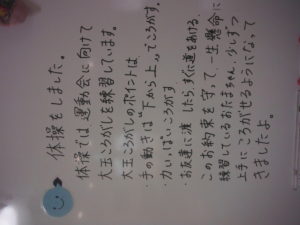 体操をしました。
体操では運動会に向けて
大玉ころがしを練習しています。
大玉ころがしのポイントは
・手の動きは"下から上"でころがす。
・力いっぱいころがす
・お友達に渡したら、すぐに道をあける。
このお約束を守って、一生懸命に
練習しているおたまちゃん。少しずつ
上手にころがせるようになって
きましたよ。